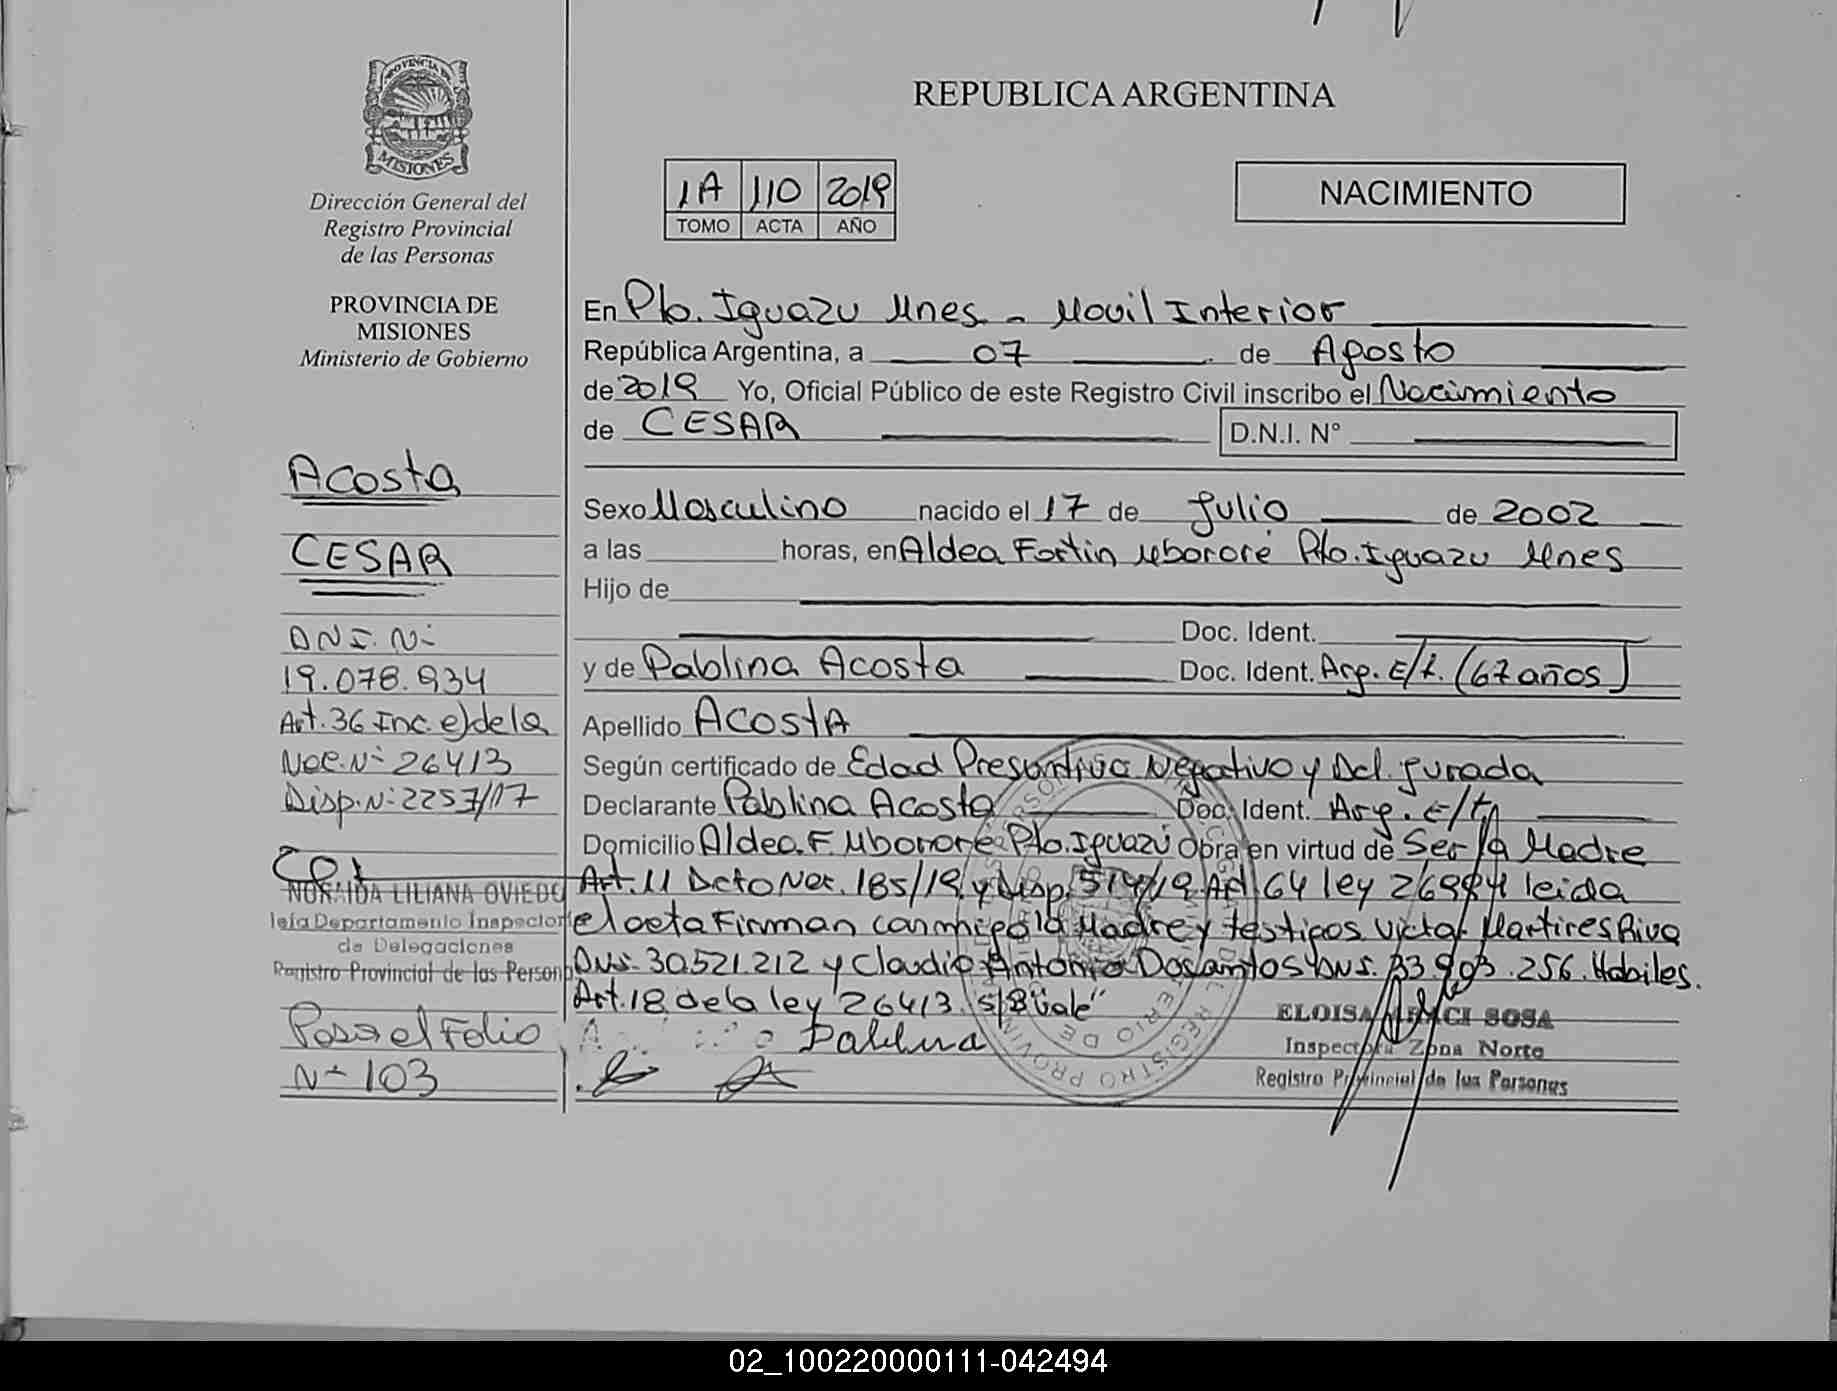 PROVINCIA DE
MISIONES
Dirección General del
Registro Provincial
de las Personas
PROVINCIA DE
MISIONES
Ministerio de Gobierno
Acosta
CESAR
D N I. Nº
19.078.934
Art. 36 Inc. e) de la
Nac. Nº 26413
Disp. Nº 2257/17
NORAIDA LILIANA OVIEDO
Jefa Departamento Inspector
de Delegaciones
Registro Provincial de las Person
Pasa el Folio
Nº 103
REPUBLICA ARGENTINA
1A 110 2019
TOMO ACTA AÑO
NACIMIENTO
En Pto. Iguazu Mnes - Movil Interior
República Argentina, a 07 de Agosto
de 2019 Yo, Oficial Público de este Registro Civil inscribo el Nacimiento
de CESAR D.N.I. N°
Sexo Masculino nacido el 17 de Julio de 2002
a las horas, en Aldea Fortin Mbororé Pto. Iguazu Mnes
Hijo de
Doc. Ident.
y de Pablina Acosta Doc. Ident. Arg. E/t. (67 años)
Apellido ACOSTA
Según certificado de Edad Presuntiva Negativo y Dcl. Jurada
Declarante Pablina Acosta Doc. Ident. Arg. E/t
Domicilio Aldea F. Mbororé Pto. Iguazú Obra en virtud de Ser la Madre
Art. 11 Dcto Nac. 185/19 y Disp. 514/19 Art 64 ley 26994 leida
el acta Firman conmigo la Madre y testigos Victor Martires Riva
DNI. 30.521.212 y Claudio Antonio Dosantos DNI. 33.903.256. Habiles.
Art. 18 de la ley 26413. S/B "vale"
Pablina
ELOISA SOSA
Inspectora Zona Norte
Registro Provincial de las Personas
02_100220000111-042494